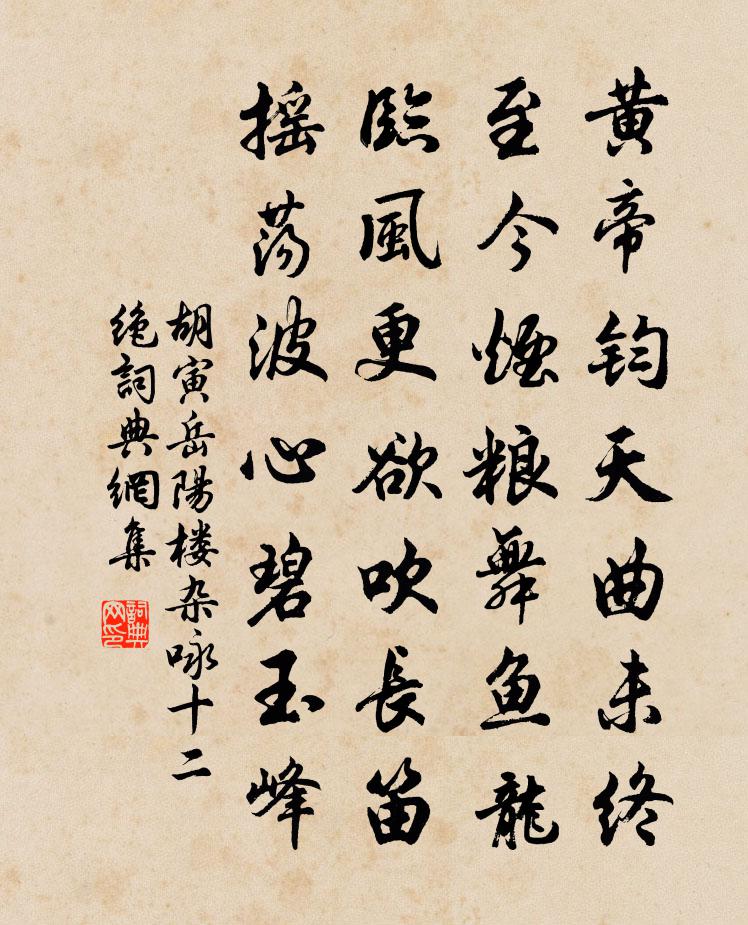 黄帝鈞天曲未终
至今煙粮舞鱼龍
臨風更欲吹長笛
摇荡波心碧玉峰
胡寅岳陽楼杂咏十二
绝詞典網集
詞典网印